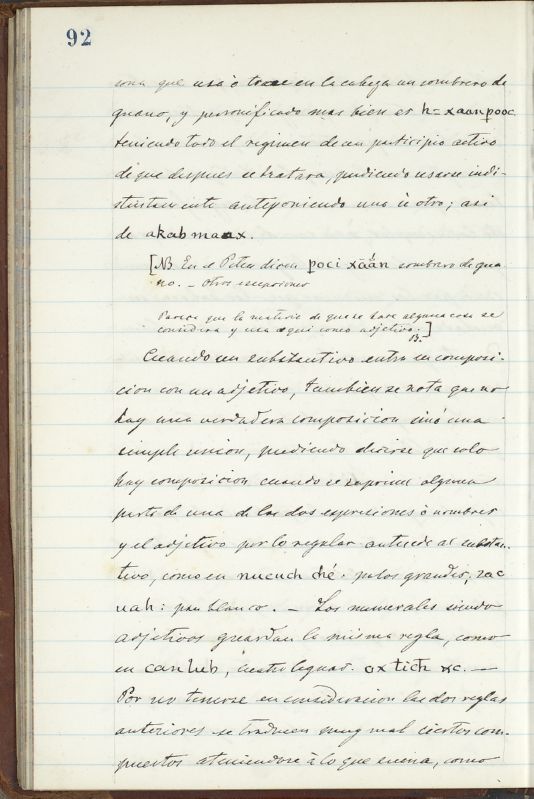 92
sona que usa ò trae en la cabeza un sombrero de
guano, y personificado mas bien es h=xaanpooc
teniendo todo el regimen de un participio activo
de que despues se tratara, pudiendo usarse indi-
stintamente anteponiendo uno ù otro; asi
de akab maax.
[NB En el Peten dicen poci xăăn sombrero de gua-
no. — otras escepciones
Parece que la materia de que se hace alguna cosa se
considera y usa aqui como adjetivo.]
B.
Cuando un substantivo entra en composi-
cion con un adjetivo, tambien se nota que no
hay una verdadera composicion sinó una
simple union, pudiendo decirse que solo
hay composicion cuando se suprime alguna
parte de una de las dos espresiones ò nombres
y el adjetivo por lo regular antecede al substan-
tivo, como en nucuch ché: palos grandes, zac
uah: pan blanco. — Los numerales siendo
adjetivos guardan la misma regla, como
en can lub, cuatro leguas. ox tich &c. —
Por no tenerse en consideracion las dos reglas
anteriores se traducen muy mal ciertos com-
puestos ateniendose à lo que suena, como